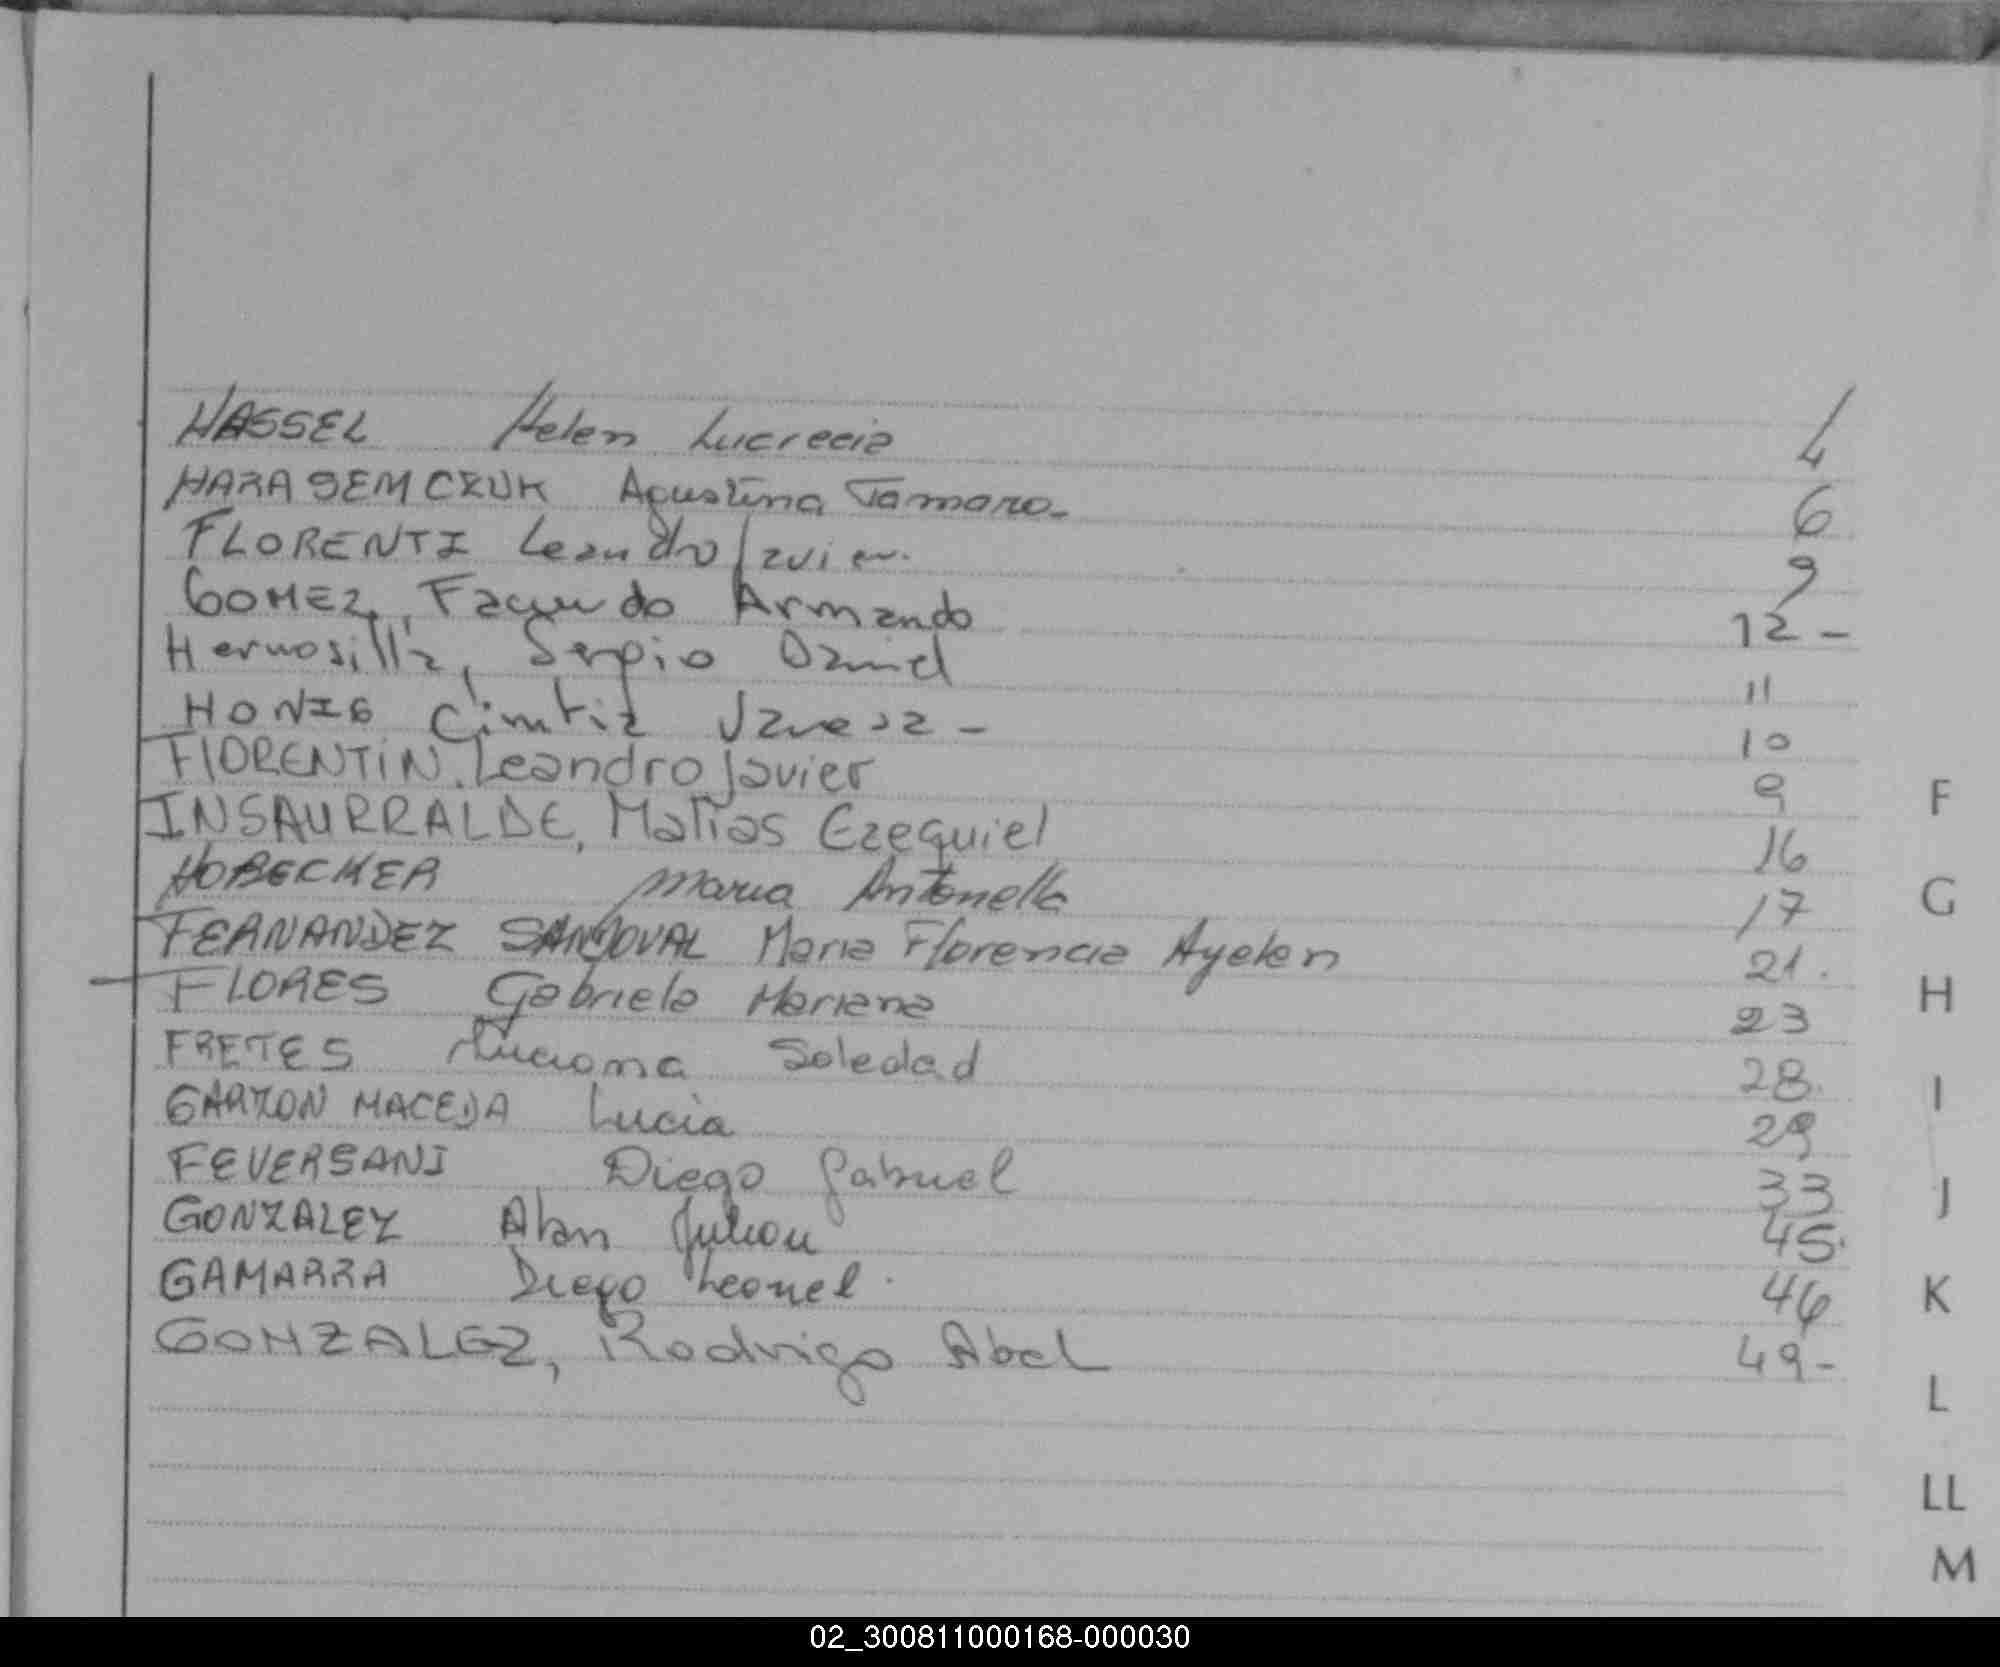 HASSEL Helen Lucrecia 4
HARASEMCZUK Agustina Tamara- 6
FLORENTI Leandro Javier. 9
GOMEZ, Facundo Armando 12-
Hermosilla, Sergio Daniel 11
HONIG Cintia Vanesa- 10
FlORENTíN. Leandro Javier 9
F
INSAURRALDE, Matías Ezequiel 16
HOBECKER Maria Antonella 17
G
FERNANDEZ SANDOVAL Maria Florencia Ayelen 21.
FLORES Gabriela Mariana 23
H
FRETES Luciana Soledad 28.
I
GARZON MACEDA Lucia 29
FEVERSANI Diego Gabriel 33
J
GONZALEZ Alan Julian 45.
GAMARRA Diego Leonel. 46
K
GONZALEZ, Rodrigo Abel 49-
L
LL
M
02_300811000168-000030